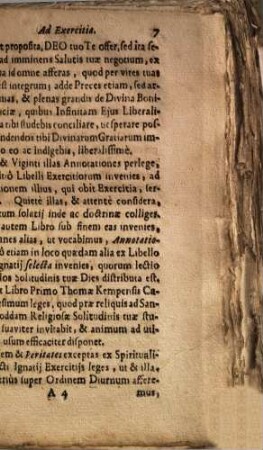 Ad Exercitia. 7
t proposita, DEO tuo Te offer, sed ita se-
ad imminens Salutis tuæ negotium, ex
a id omne afferas, quod per vites tuas
st integrum; adde Preces etiam, sed at-
nas, & plenas grandis de Divina Boni-
ciæ, quibus Infinitam Ejus Liberali-
a tibi studebis conciliare, ut sperare pos-
ndendos tibi Divinatum Gratiarum im-
o eo ac Indigebis, liberalissimè.
& Viginti illas Annotationes perlege,
itiô Libelli Exercitiorum invenies, ad
ionem illius, qui obit Exercitia, ser-
. Quiete illas, & attentè considera,
tum solatij inde ac doctrinæ colliges.
autem Libro sub finem eas invenies,
nes alias, ut vocabimus, Annotatio-
ô etiam in loco quædam alia ex Libello
gnatij selecta invenies, quorum lectio
os Solitudinis tuæ Dies distributa est,
t Libro Primo Thomæ Kempensis Ca-
esimum leges, quod præ reliquis ad San-
oddam Religiosæ Solitudinis tuæ stu-
suaviter invitabit, & animum ad uti-
usum efficaciter disponet.
em & Veritates exceptas ex Spirituali-
cti Ignatij Exercitijs leges, ut & illa
eriùs super Ordinem Diurnum affere-
A 4 mus;